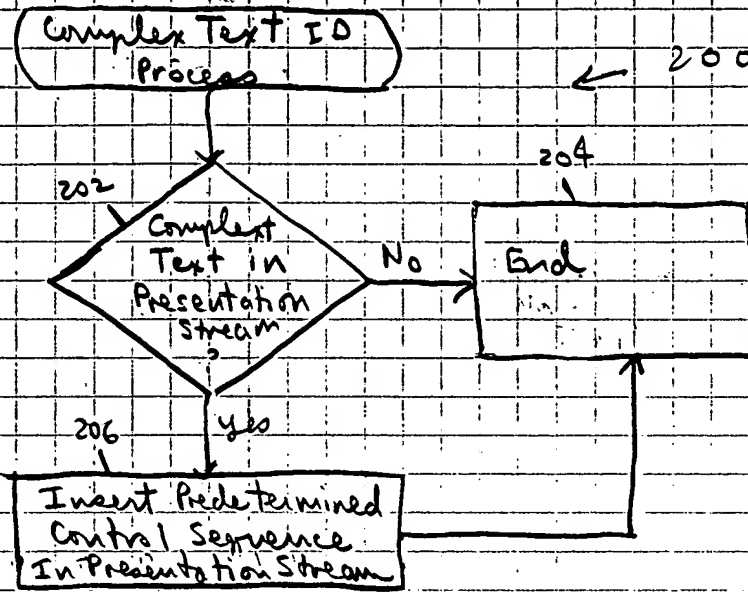 Complex Text ID
Process
200
204
202
Complext
Text in
Presentation
Stream
?
No
End
Yes
206
Insert Predetermined
Control Sequence
In Presentation Stream